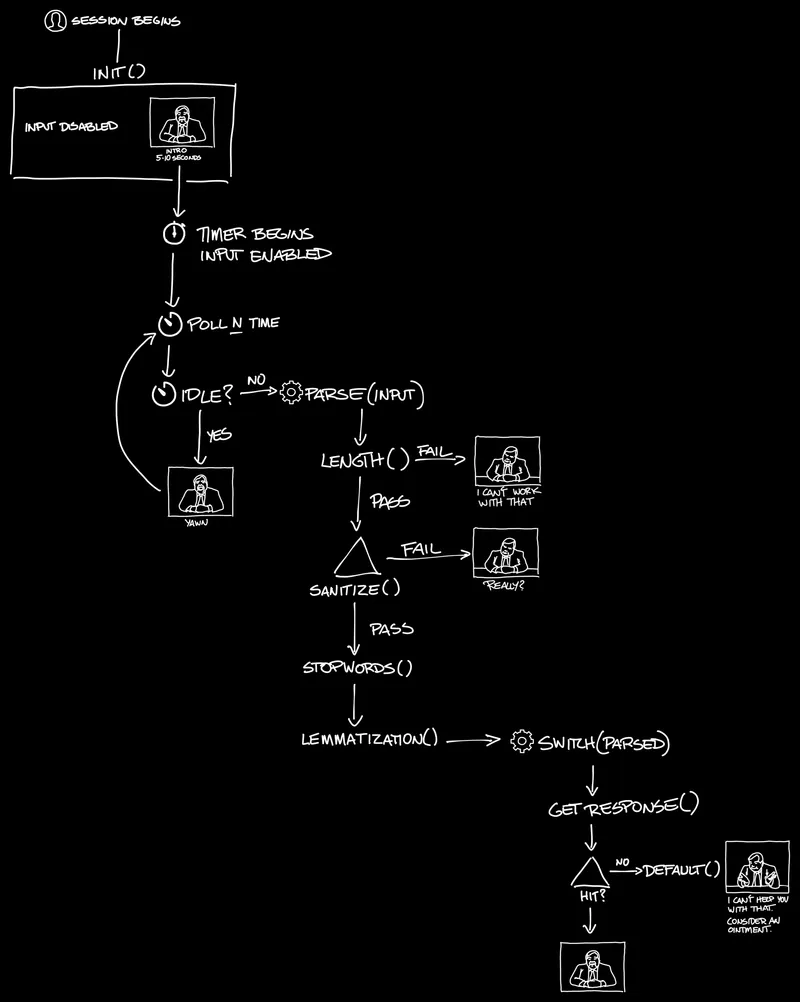 SESSION BEGINS
INIT()
INPUT DISABLED
INTRO
5-10 SECONDS
TIMER BEGINS
INPUT ENABLED
POLL N TIME
IDLE?
NO
PARSE(INPUT)
YES
YAWN
LENGTH()
FAIL
I CAN'T WORK
WITH THAT
PASS
FAIL
SANITIZE()
REALLY?
PASS
STOPWORDS()
LEMMATIZATION()
SWITCH(PARSED)
GET RESPONSE()
HIT?
NO
DEFAULT()
I CAN'T HELP YOU
WITH THAT.
CONSIDER AN
OINTMENT.